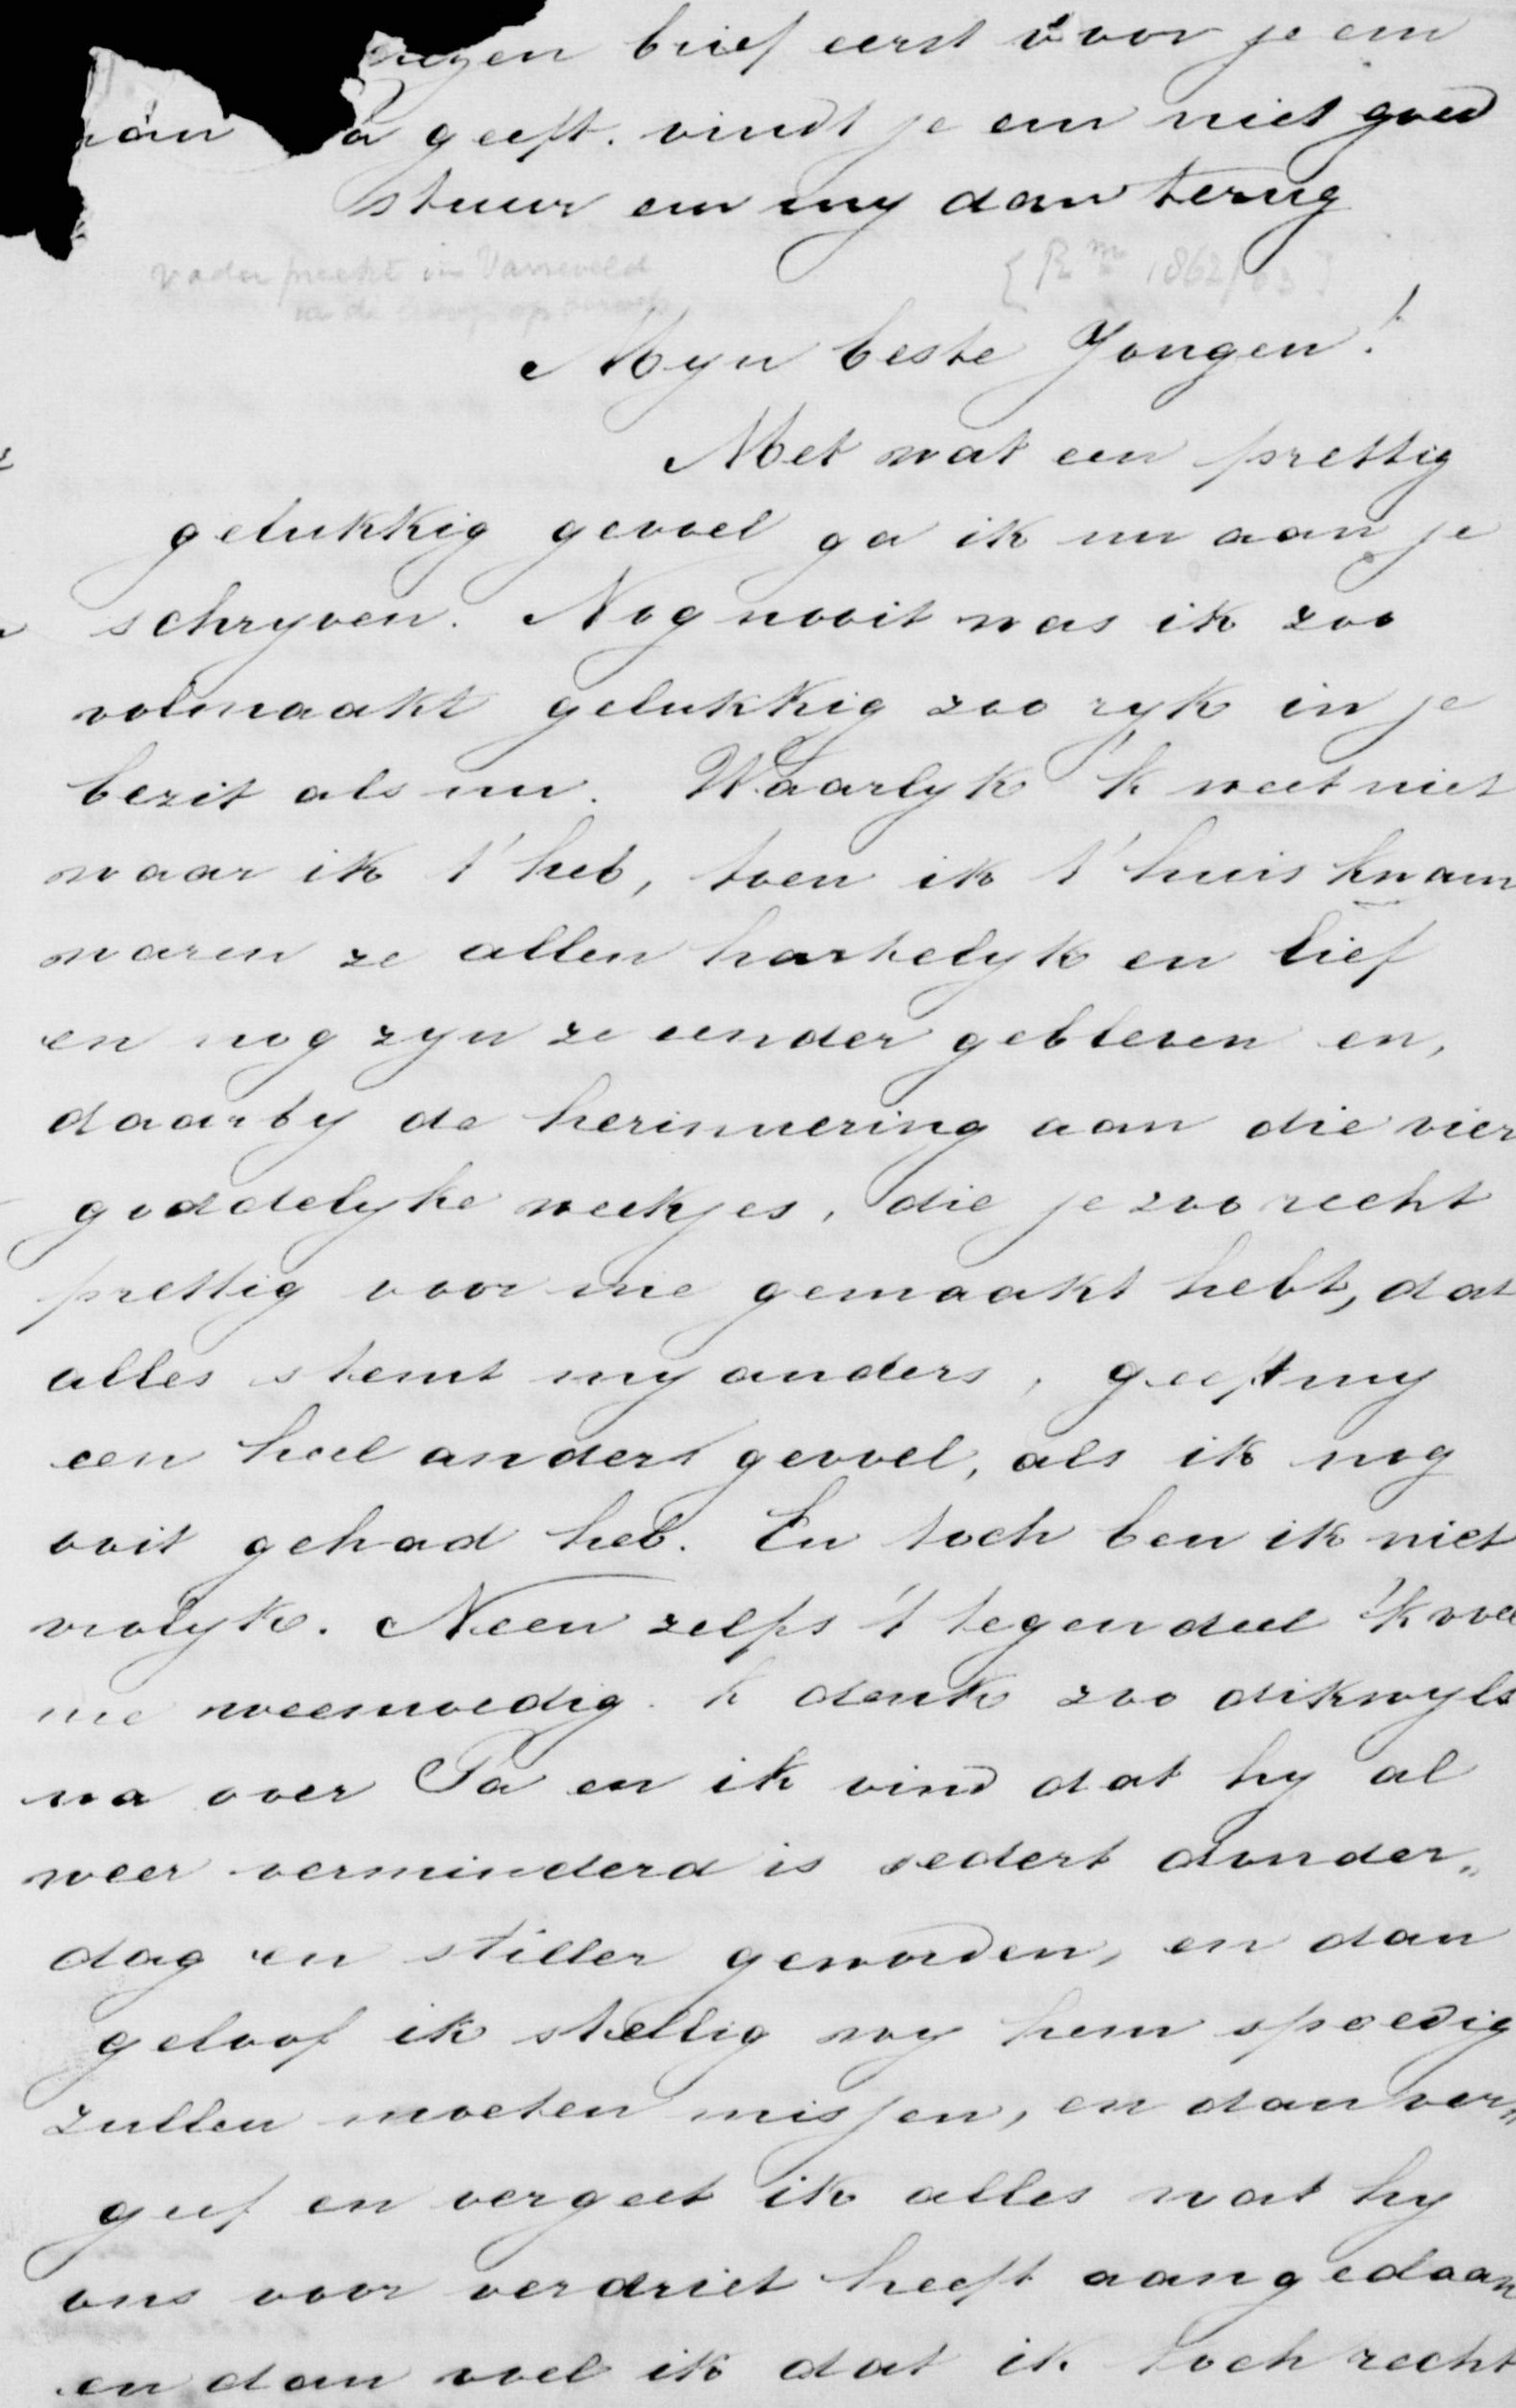 brief eerst voor je em
geeft. vindt je em niet goed
stuur em my dan terug
vader preekt in Varseveld
1862/63
Myn beste Jongen!
Met wat een prettig
gelukkig gevoel ga ik nu aan je
schryven. Nog nooit was ik zoo
volmaakt gelukkig zoo ryk in je
bezit als nu. Waarlyk 'k weet niet
waar ik t' heb, toen ik t' huis kwam
waren ze allen hartelyk en lief
en nog zyn ze eender gebleven en,
daarby de herinnering aan die vier
goddelyke weekjes, die je zoo recht
prettig voor me gemaakt hebt, dat
alles stemt my anders, geeft my
een heel anders gevoel, als ik nog
ooit gehad heb. En toch ben ik niet
vrolyk. Neen zelfs 't tegendeel 'k voel
me weemoedig. k denk zoo dikwyls
na over Pa en ik vind dat hy al
weer verminderd is sedert donder„
dag en stiller geworden, en dan
geloof ik stellig wy hem spoedig
zullen moeten missen, en dan ver„
geef en vergeet ik alles wat hy
ons voor verdriet heeft aangedaan
en dan voel ik dat ik toch recht